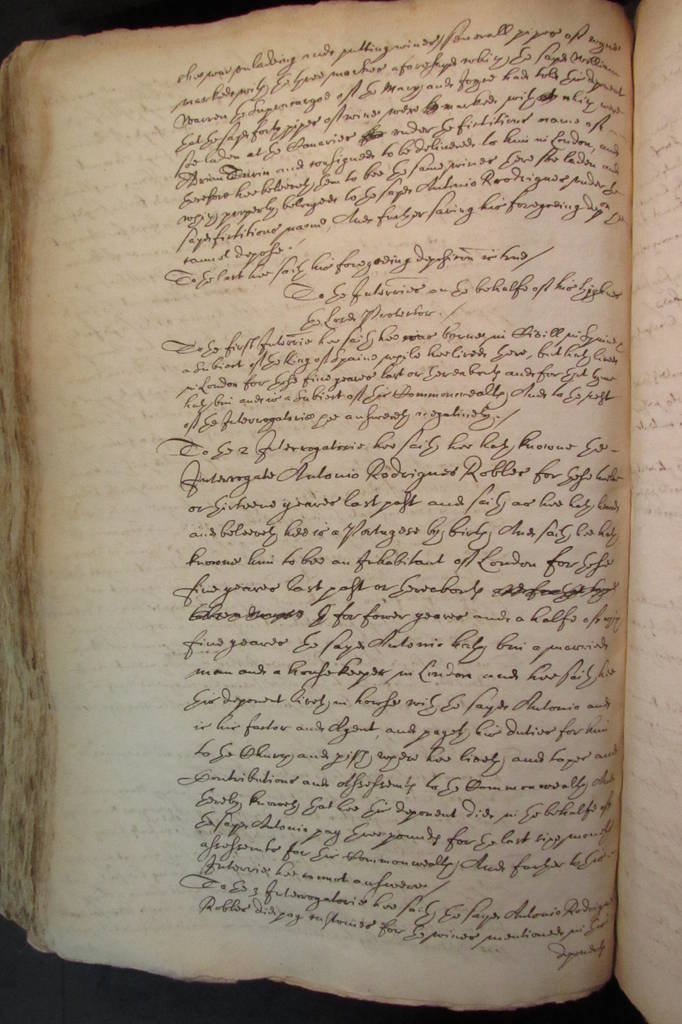 she was unlading and putting wines severall pipes of wynes
marked with the three markes aforesayd which the sayd William
Warren the Supracargoe of the Mary and Joyce had told this deponent
that the sayd forty pipes of wine were soe marked with which were
soe laden at the Canaries under the fictitious name of
and consigned to be delivered to him in London, and
therefore hee beleeveth them to bee the same wines there soe laden and
which properly belonged to the sayd Antonio Roodrigues under the
sayd fictitious name, And further saving his foregoeing deposition
cannot depose./
To the last hee saith his foregoeing deposicion is true/
To the Interries on the behalfe of his Highnes
the Lord Protector./
To the first Interrie hee saith hee was borne in Civill in Spaine
a Subiect of the King of Spaine while hee lived there, but hath lived
in London for these five yeares last or thereabouts and for that tyme
hath bin and is a Subiect of this Commonwealth, And to the rest
of the Interrogatorie hee answereth negatively./
To the 2 Interrogatorie hee saith hee hath knowne the
Interrogate Antonio Rodrigues Robles for these
or thirteene yeares last past and saith as hee hath heard
and beleeveth hee is a Portugese by birth, And saith hee hath
knowne him to bee an Inhabitant of London for these
five yeares last past or thereabouts
for fower yeares and a halfe of which
five yeares the sayd Antonio hath bin a married
man and a housekeeper in London and hee saith hee
this deponent liveth in house with the sayd Antonio and
is his factor and Agent, and payeth his duties for him
to the Church and pish where hee liveth, and taxes and
Contributions and Assessments to the Commonwealth, And
thereby knoweth that hee this deponent did in the behalfe of
the sayd Antonio pay three pounds for the last sixe moneths
assessments for this Commonwealth, And further to this
Interrie hee cannot answere/
To the 3 Interrogatorie hee saith the sayd Antonio Rodrigues
Robles did pay customes for the wines mentioned in his
deponents